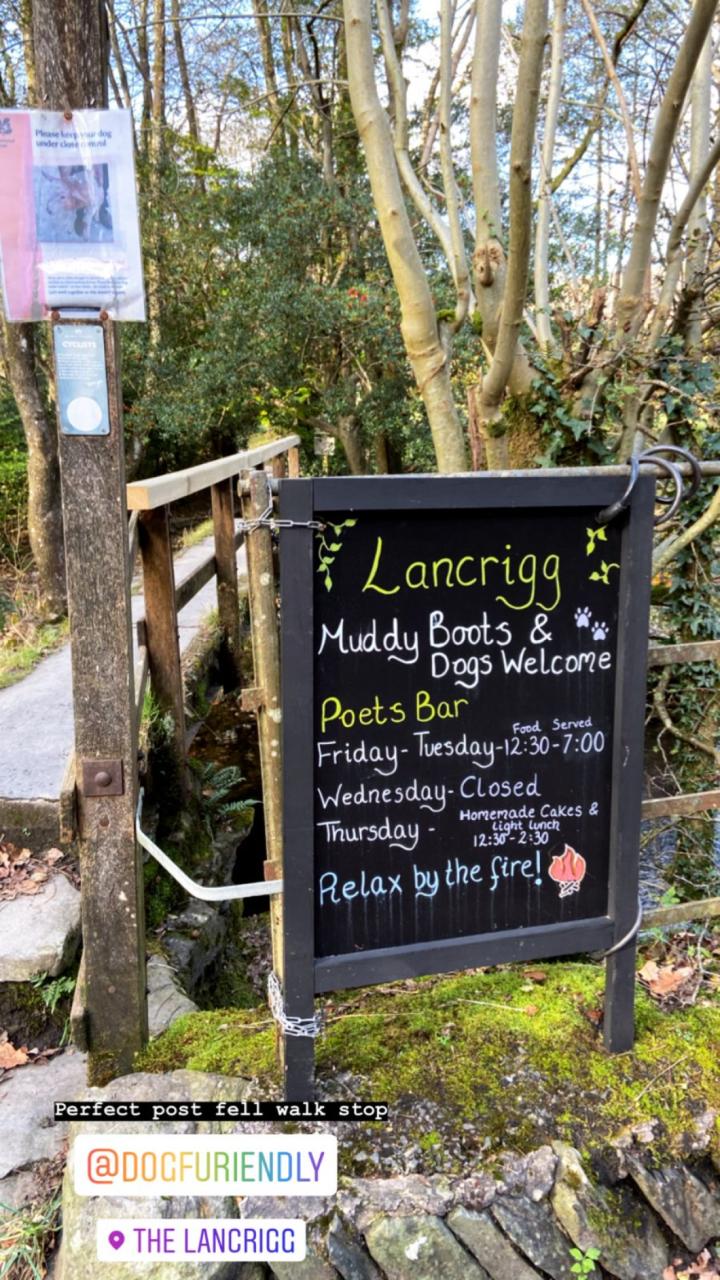 Please keep your dog
under close control
CYCLISTS
Lancrigg
Muddy Boots &
Dogs Welcome
Poets Bar
Food Served
Friday - Tuesday - 12:30 - 7:00
Wednesday - Closed
Thursday - Homemade Cakes &
light lunch
12:30 - 2:30
Relax by the fire!
Perfect post fell walk stop
@DOGFURIENDLY
THE LANCRIGG